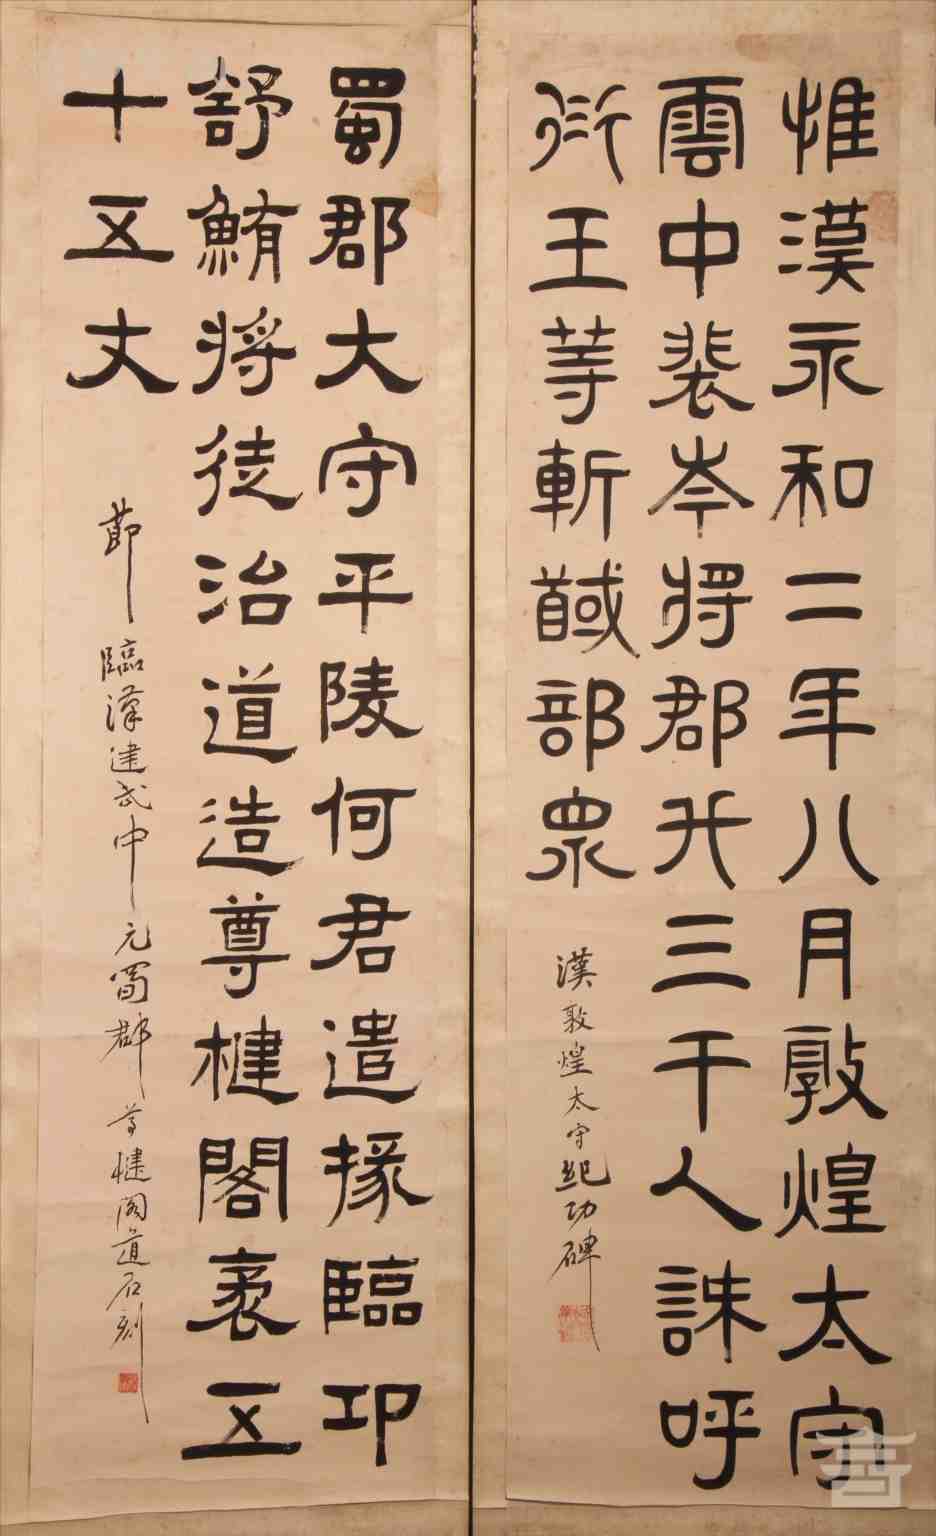 惟漢永和二年八月敦煌太守
雲中裴岑將郡兵三千人誅呼
衍王等斬馘部眾
漢敦煌太守紀功碑
蜀郡大守平陵何君遣掾臨邛
舒鮪將徒治道造尊楗閣袤五
十五丈
節臨漢建武中元蜀郡尊楗閣道石刻